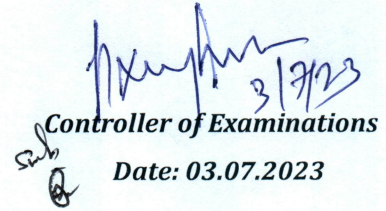 3/7/23
Controller of Examinations
Date: 03.07.2023